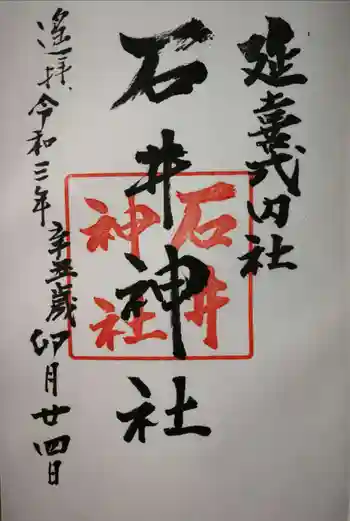 延喜式内社
石井神社
石井
神社
遥拝、令和三年辛丑歳卯月廿四日